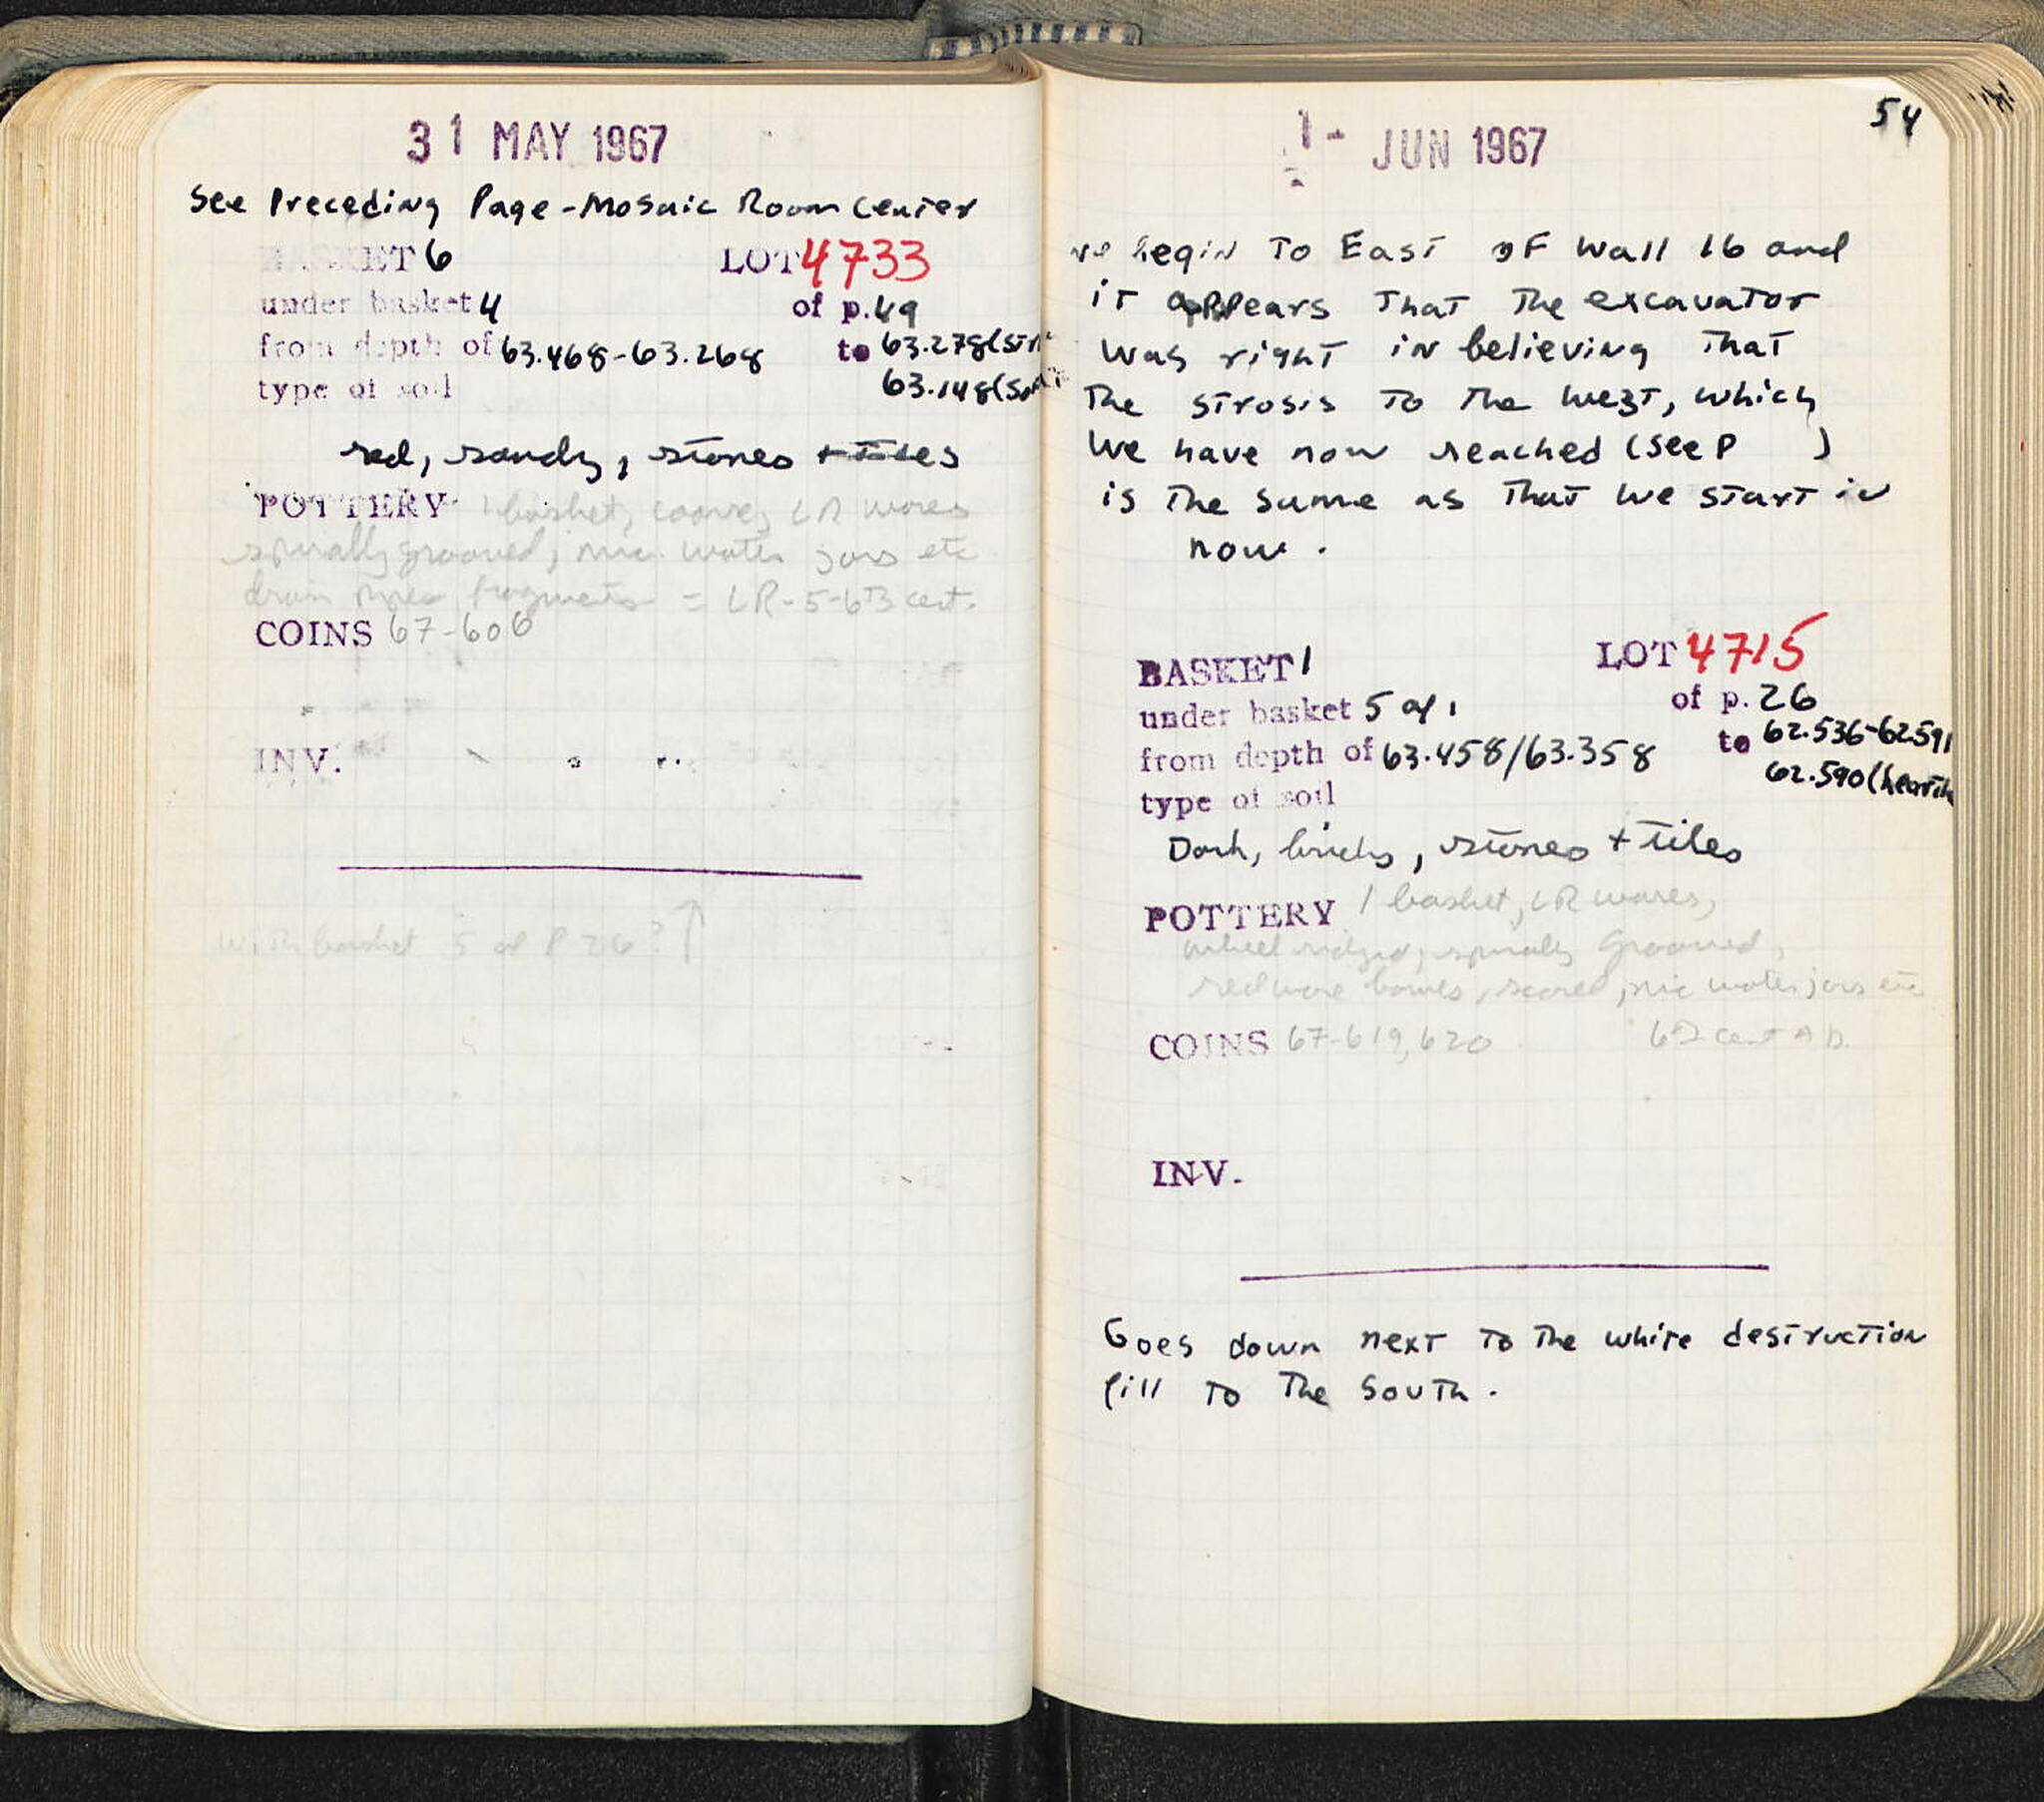 31 MAY 1967
See Preceding Page - Mosaic Room Center
BASKET 6 LOT 4733
under basket 4 of p. 49
from depth of 63.468-63.268 to 63.278
type of soil 63.148
red, sandy, stones + tiles
POTTERY 1 basket, coarse, LR wares
spirally grooved, mic. water jars etc
drain pipes fragments = LR - 5-6th cent.
COINS 67-606
INV.
with basket 5 of P 26? ↑
54
1 - JUN 1967
we begin To East of Wall 16 and
it appears That The excavator
was right in believing That
The strosis To The west, which
We have now reached (see P )
is The same as That we start in
now.
BASKET 1 LOT 4715
under basket 5 of 1 of p. 26
from depth of 63.458/63.358 to 62.536-62.591
type of soil 62.590 (hearth
Dark, bricky, stones + tiles
POTTERY 1 basket, LR wares,
wheel ridged, spirally Grooved,
red ware bowls, scored, mic water jars etc
COINS 67-619, 620 6th cent A D.
INV.
Goes down next To The white destruction
fill To The South.